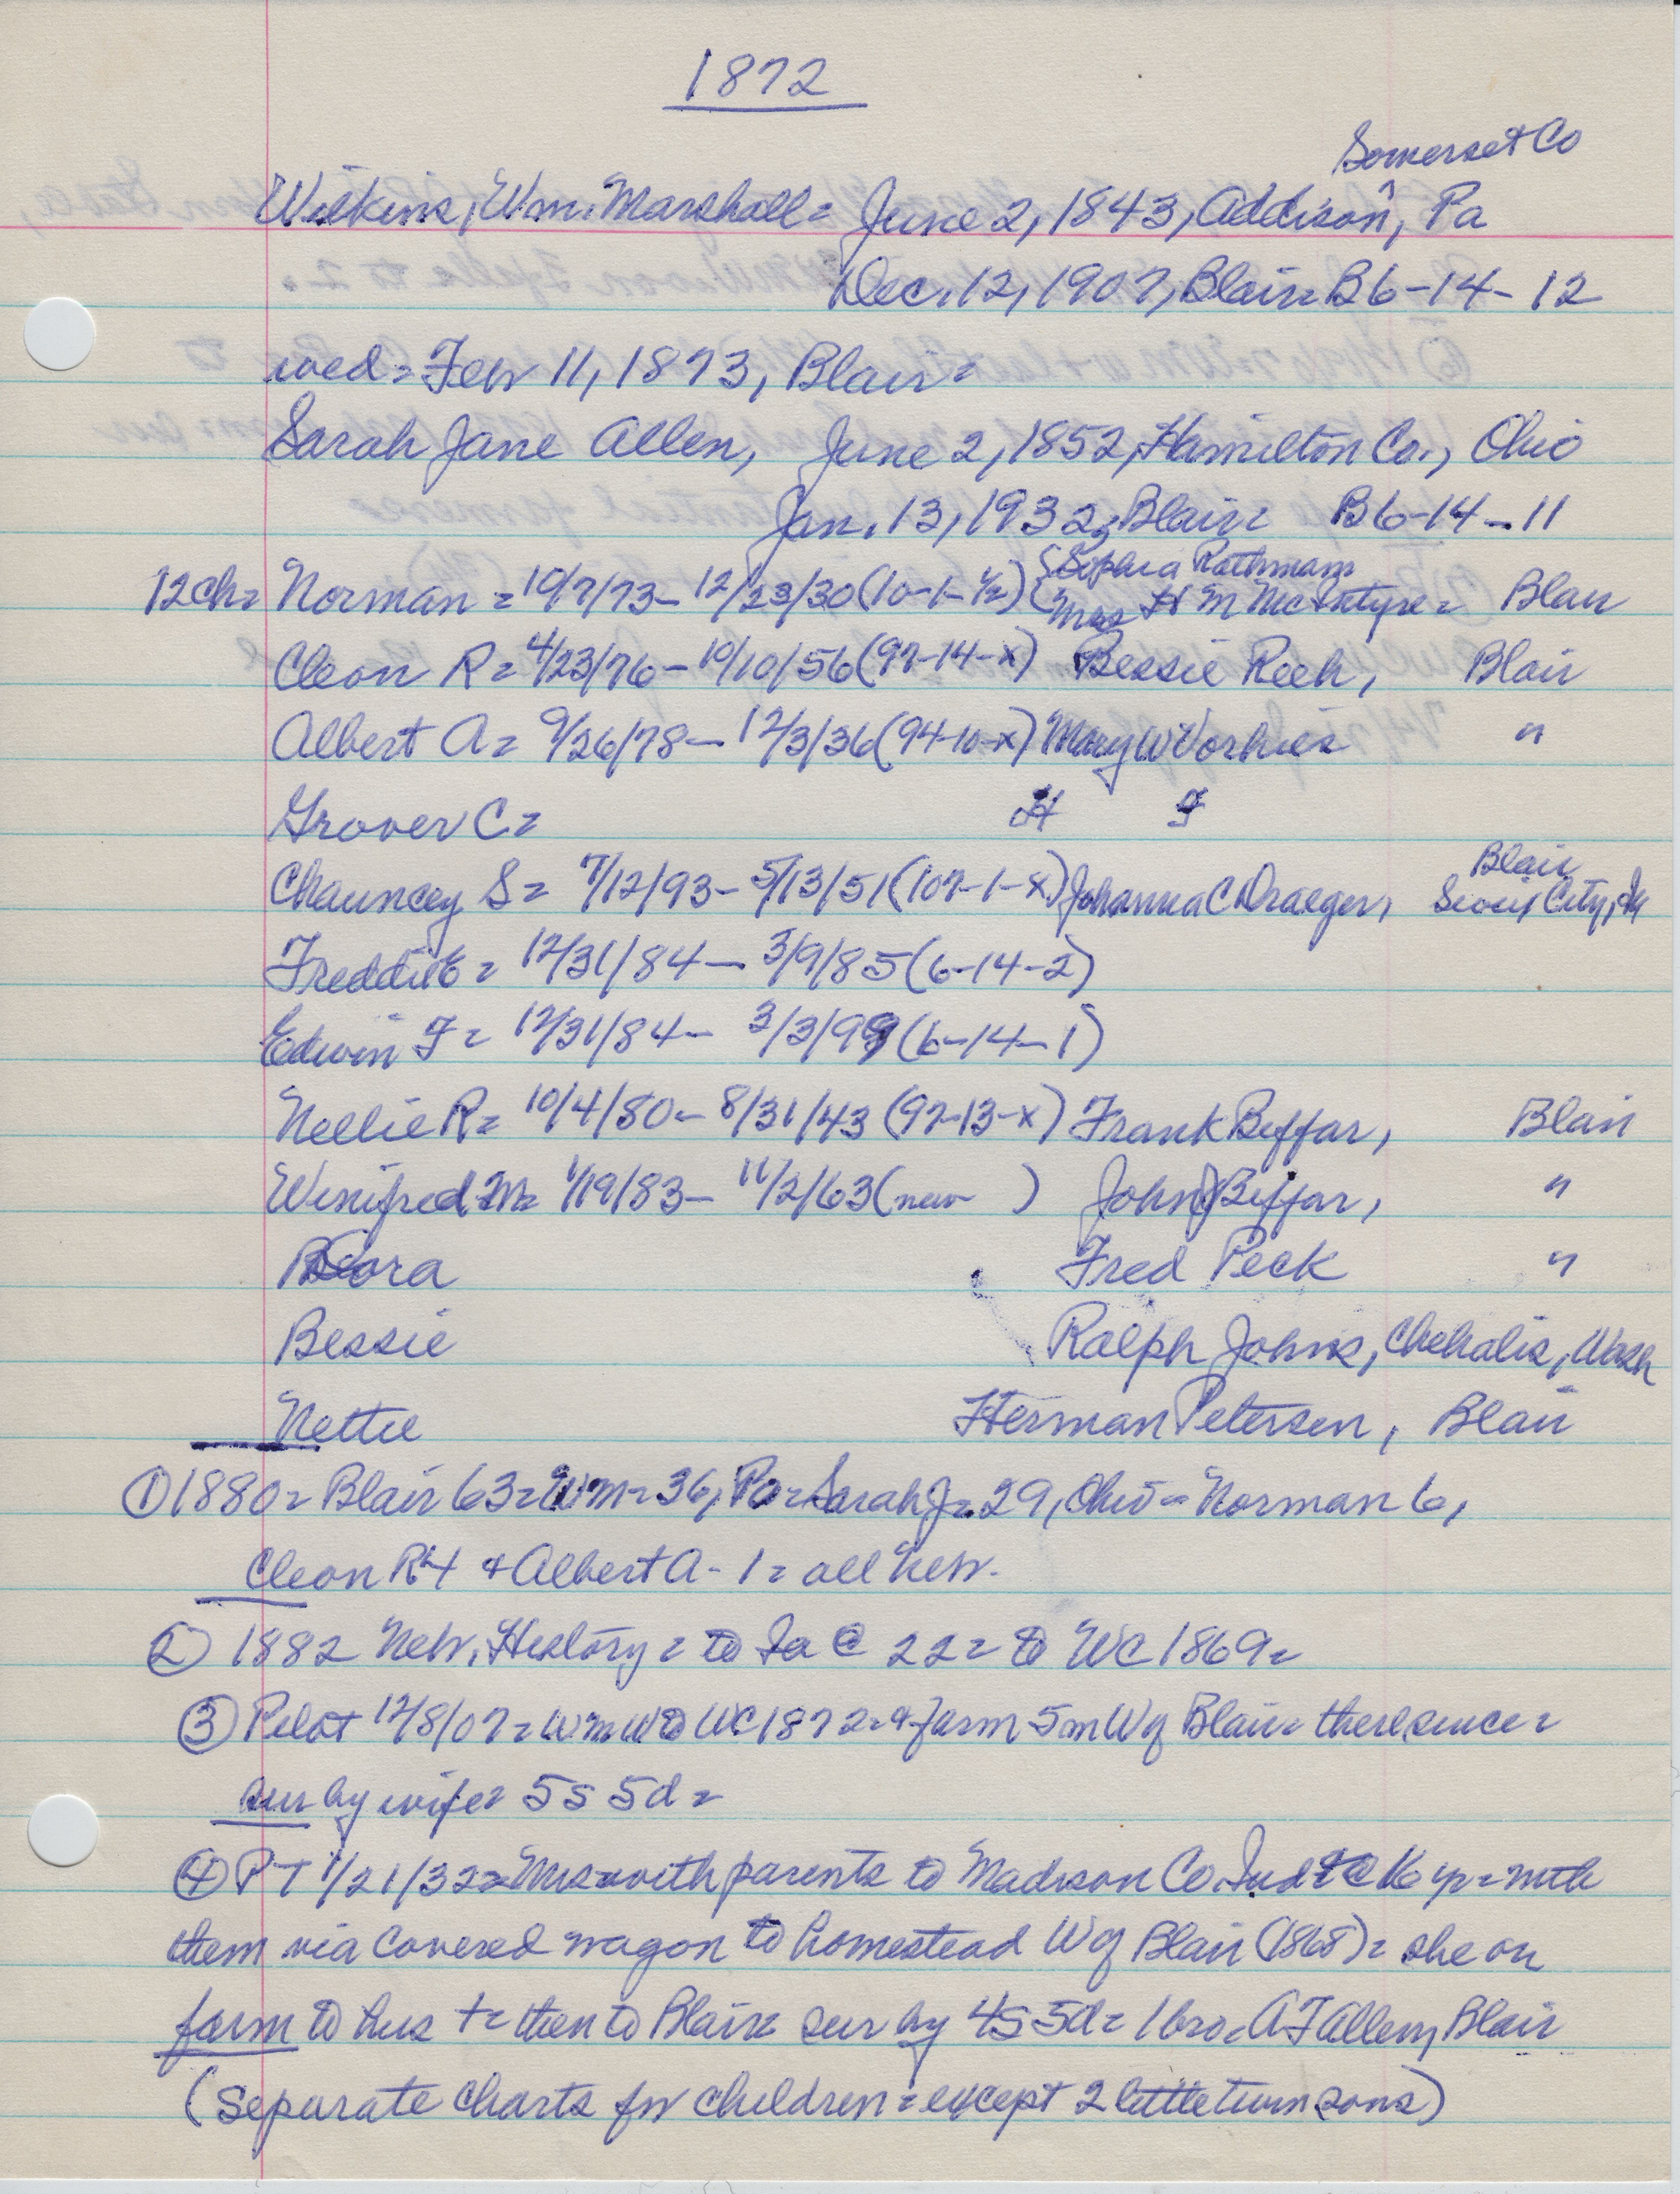 1872
Somerset Co
Wilkins, Wm. Marshall = June 2, 1843, Addison ^, Pa
Dec. 12, 1907, Blair = B 6-14-12
wed = Feb 11, 1873, Blair =
Sarah Jane Allen, June 2, 1852, Hamilton Co., Ohio
Jan. 13, 1932, Blair = B 6-14-11
(Sophia Rathmann
12 ch = Norman = 10/7/73 - 12/23/30 (10-1-1/2) (Mrs H M McIntyre = Blair
Cleon R = 4/23/76 - 10/10/56 (97-14-x) Bessie Reeh, Blair
Albert A = 9/26/78 - 12/3/36 (94-10-x) Mary W Vorhies "
Grover C = H F
Blair
Chauncey S = 7/12/93 - 5/13/51 (107-1-x) Johanna C Draeger, Sioux City, Ia
Freddie E = 12/31/84 - 3/9/85 (6-14-2)
Edwin F = 12/31/84 - 3/3/99 (6-14-1)
Nellie R = 10/4/80 - 8/31/43 (97-13-x) Frank Biffar, Blair
Winifred M = 1/19/83 - 11/2/63 (new ) John J Biffar, "
Cora Fred Peck "
Bessie Ralph Johns, Chehalis, Wash
Nettie Herman Petersen, Blair
① 1880 = Blair 63 = Wm - 36, Pa = Sarah J = 29, Ohio = Norman 6,
Cleon R 4 & Albert A - 1 = all Neb.
② 1882 Neb. History = to Ia @ 22 = to WC 1869 =
③ Pilot 12/8/07 = Wm W to WC 1872 = & farm 5 m W of Blair = there since =
sur by wife = 5s 5d =
④ PT 1/21/32 = Mrs = with parents to Madison Co. Ind @ 16 yr = with
them via covered wagon to homestead W of Blair (1868) = she on
farm to hus + = then to Blair = sur by 4s 5d = 1 bro = A F Allen, Blair
(Separate charts for children = except 2 little twin sons)